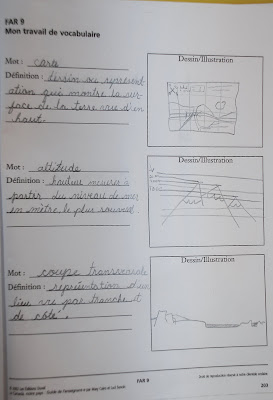 FAR 9
Mon travail de vocabulaire
Mot : carte
Définition : dessin ou représent-
ation qui montre la sur-
face de la terre vue d'en
haut.
Dessin/Illustration
Mot : altitude
Définition : hauteur mesurer à
partir du niveau de mer
en mètre le plus souvent.
Dessin/Illustration
Mot : coupe transversale
Définition : représentation d'un
lieu vue par tranche et
de côté.
Dessin/Illustration
FAR 9
203